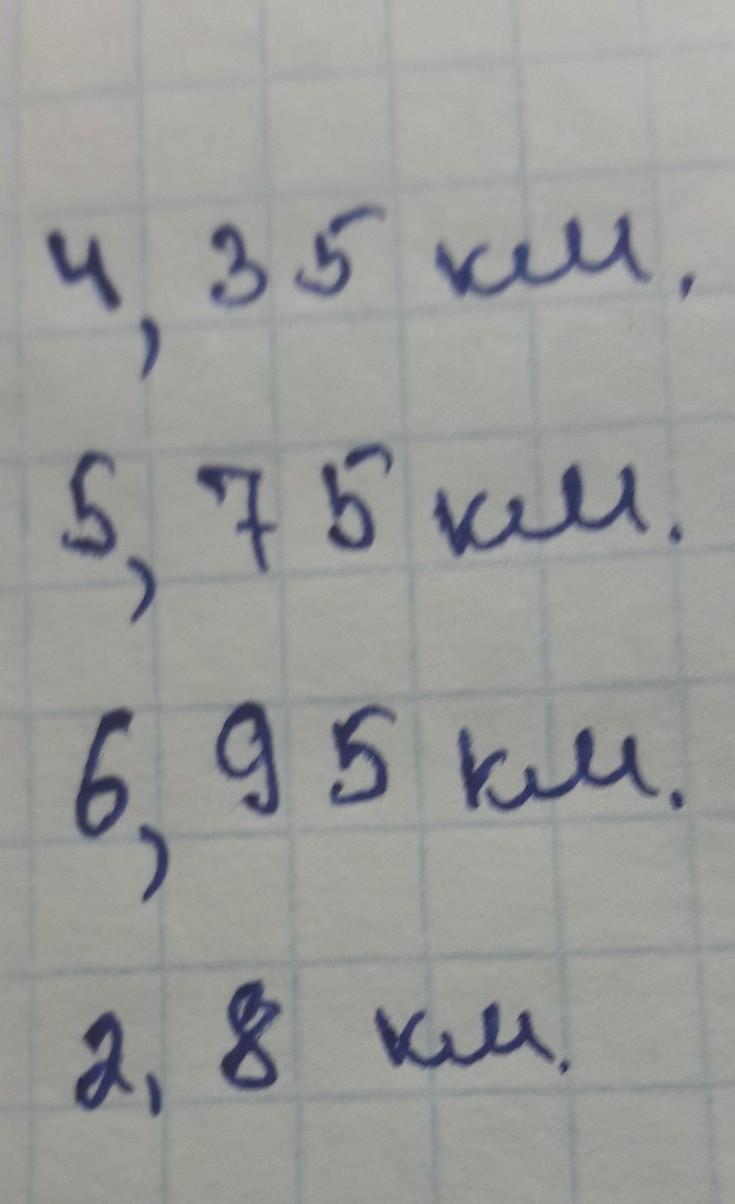 4,35 км.
5,75 км.
6,95 км.
2,8 км.